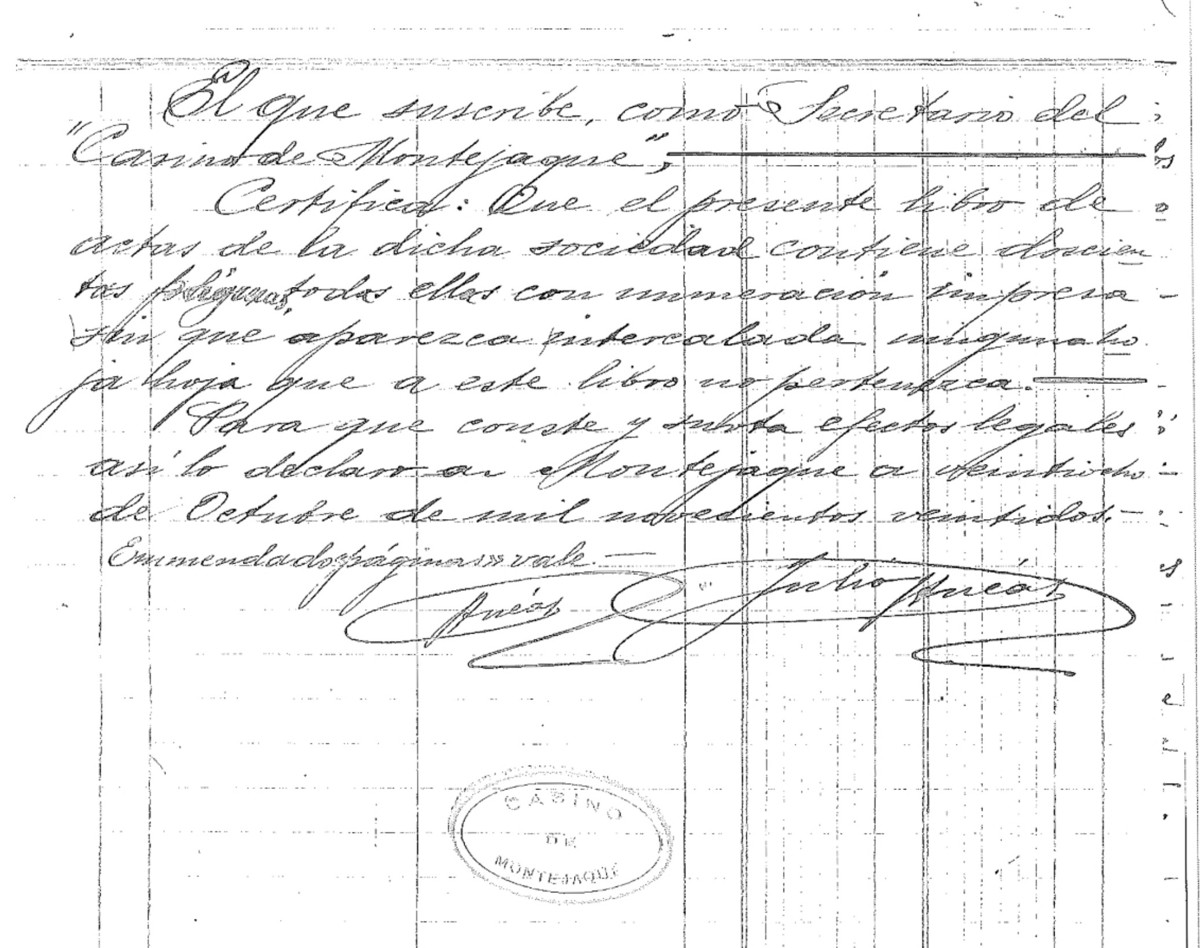 El que suscribe, como Secretario del
"Casino de Montejaque",
Certifica: Que el presente libro de
actas de la dicha sociedad contiene doscien
tas páginas, todas ellas con numeración impresa
sin que aparezca intercalada ninguna ho
ja hoja que a este libro no pertenezca.
Para que conste y surta efectos legales
así lo declaro en Montejaque a veintiocho
de Octubre de mil novecientos veintidos.
Enmendado «páginas» vale.
Julio
CASINO
DE
MONTEJAQUE